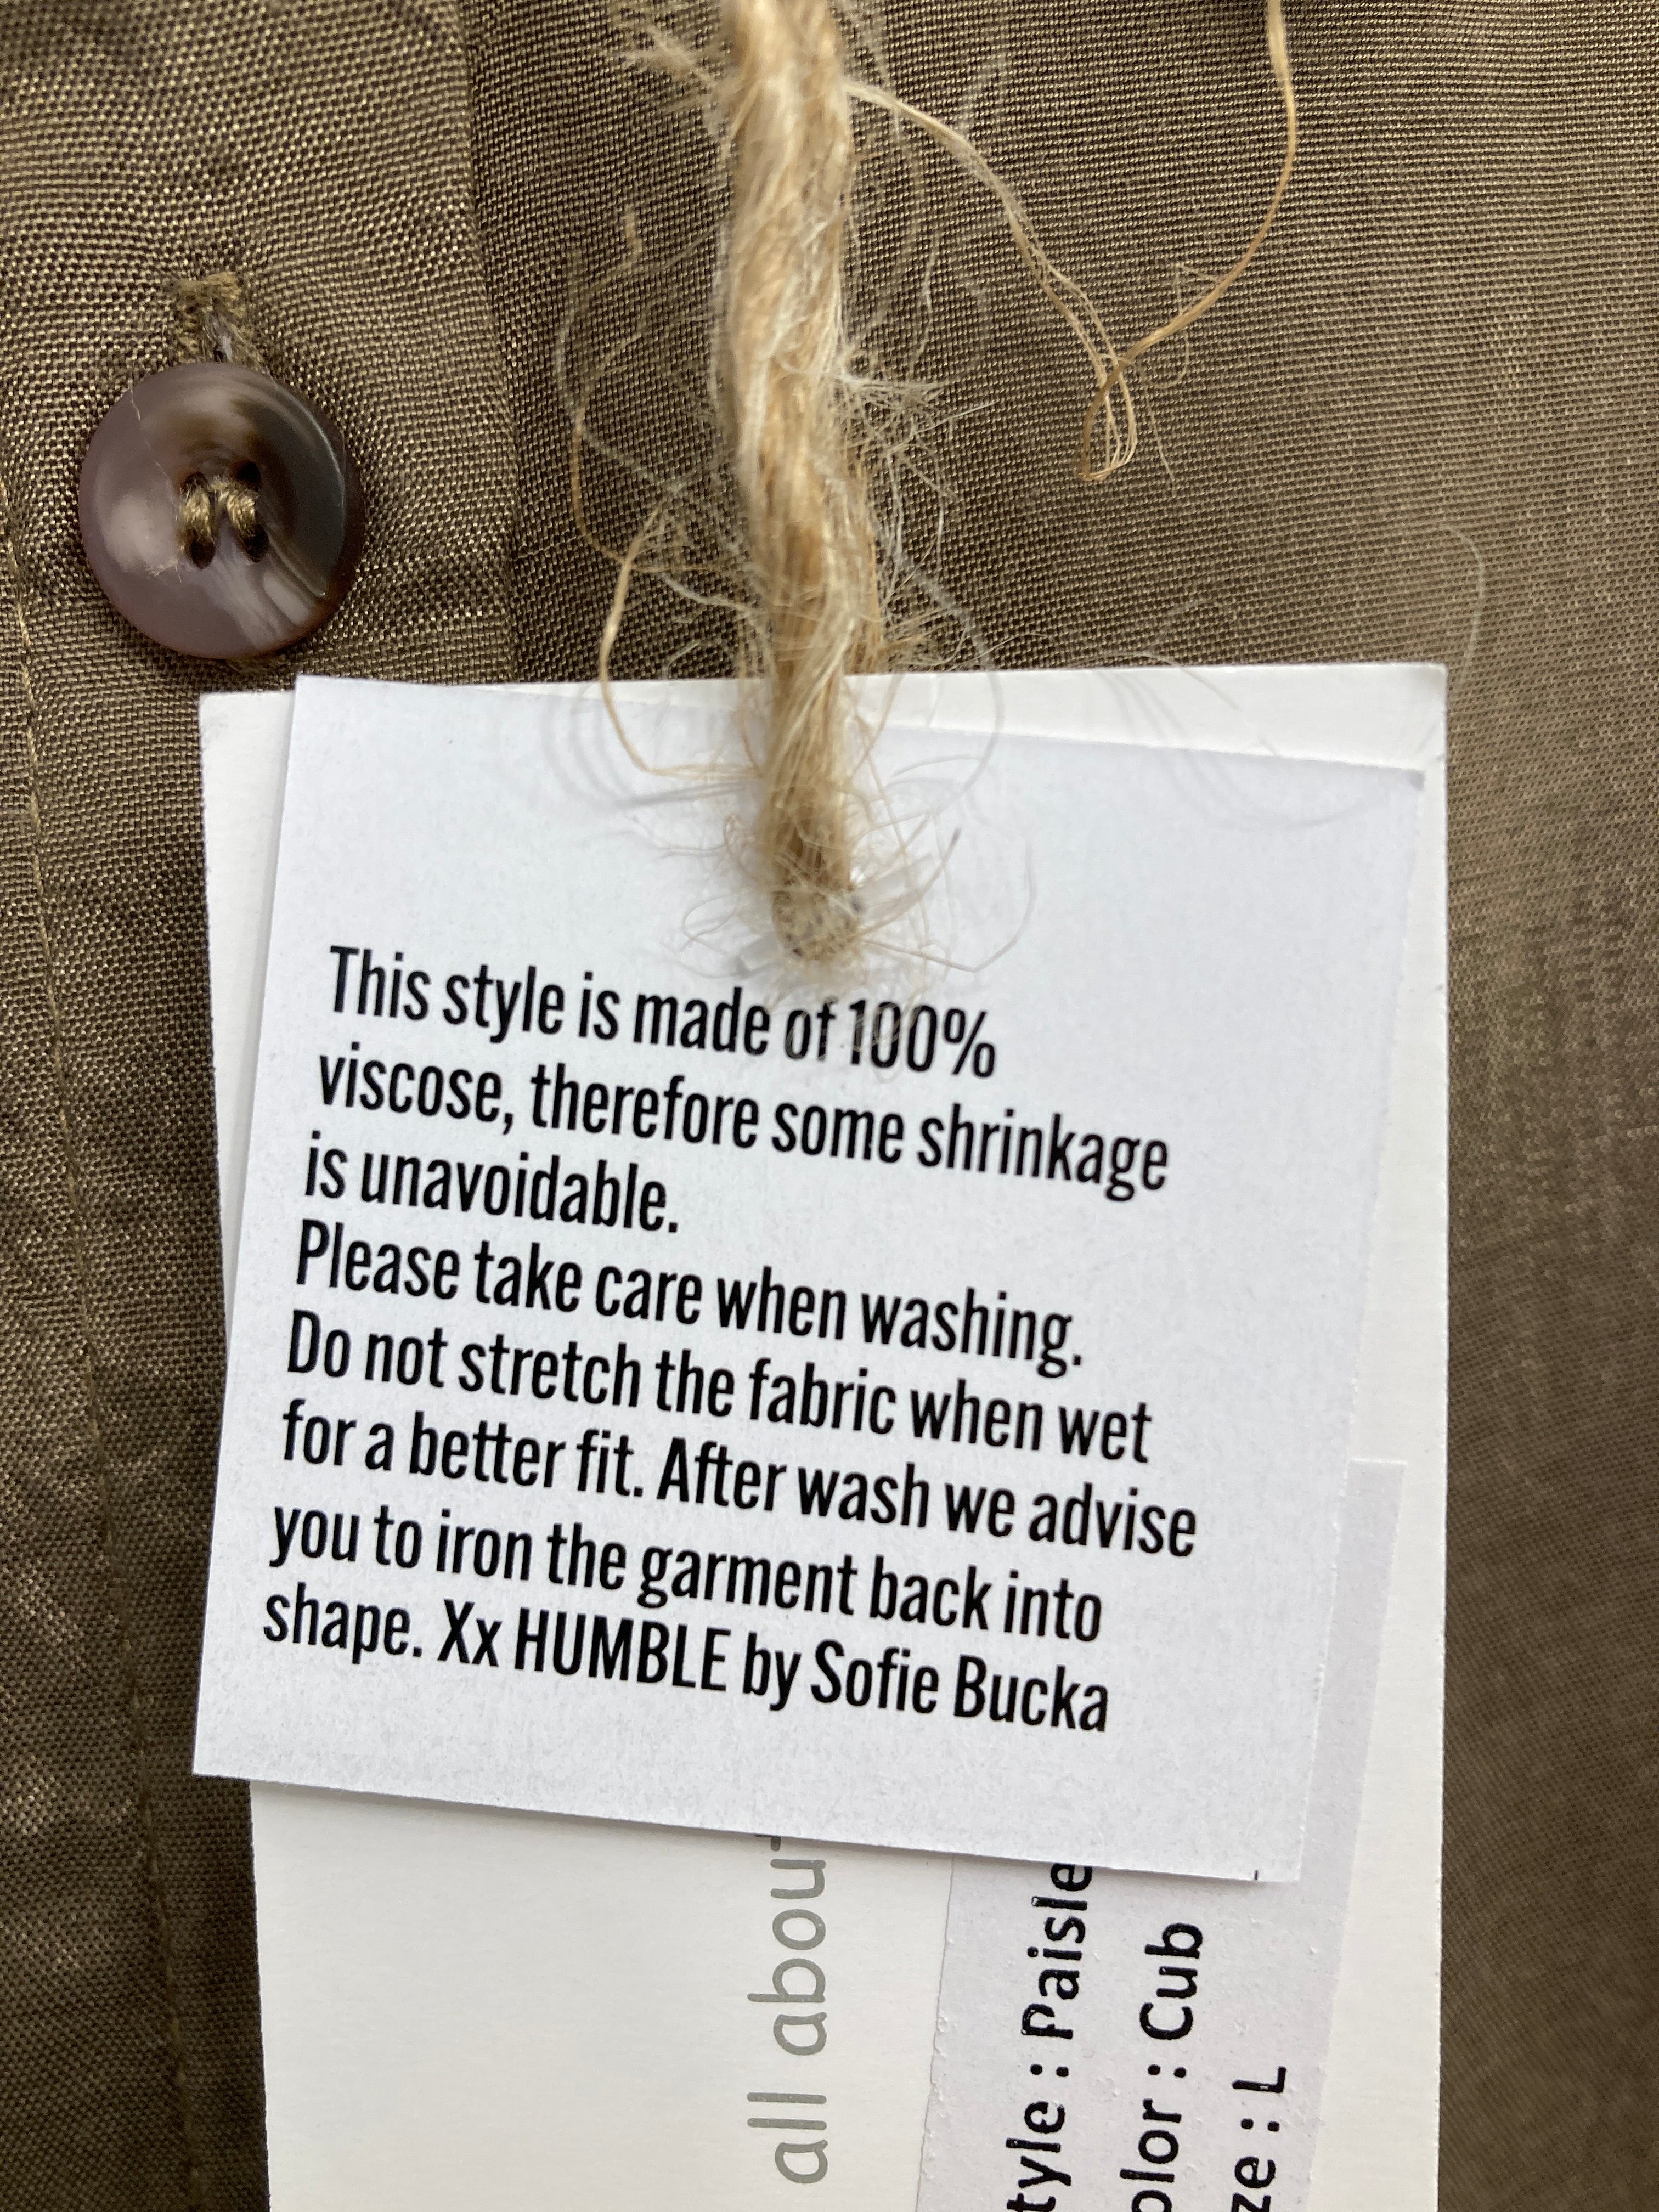 This style is made of 100%
viscose, therefore some shrinkage
is unavoidable.
Please take care when washing.
Do not stretch the fabric when wet
for a better fit. After wash we advise
you to iron the garment back into
shape. Xx HUMBLE by Sofie Bucka
all about
tyle : Paisle
olor : Cub
ze : L